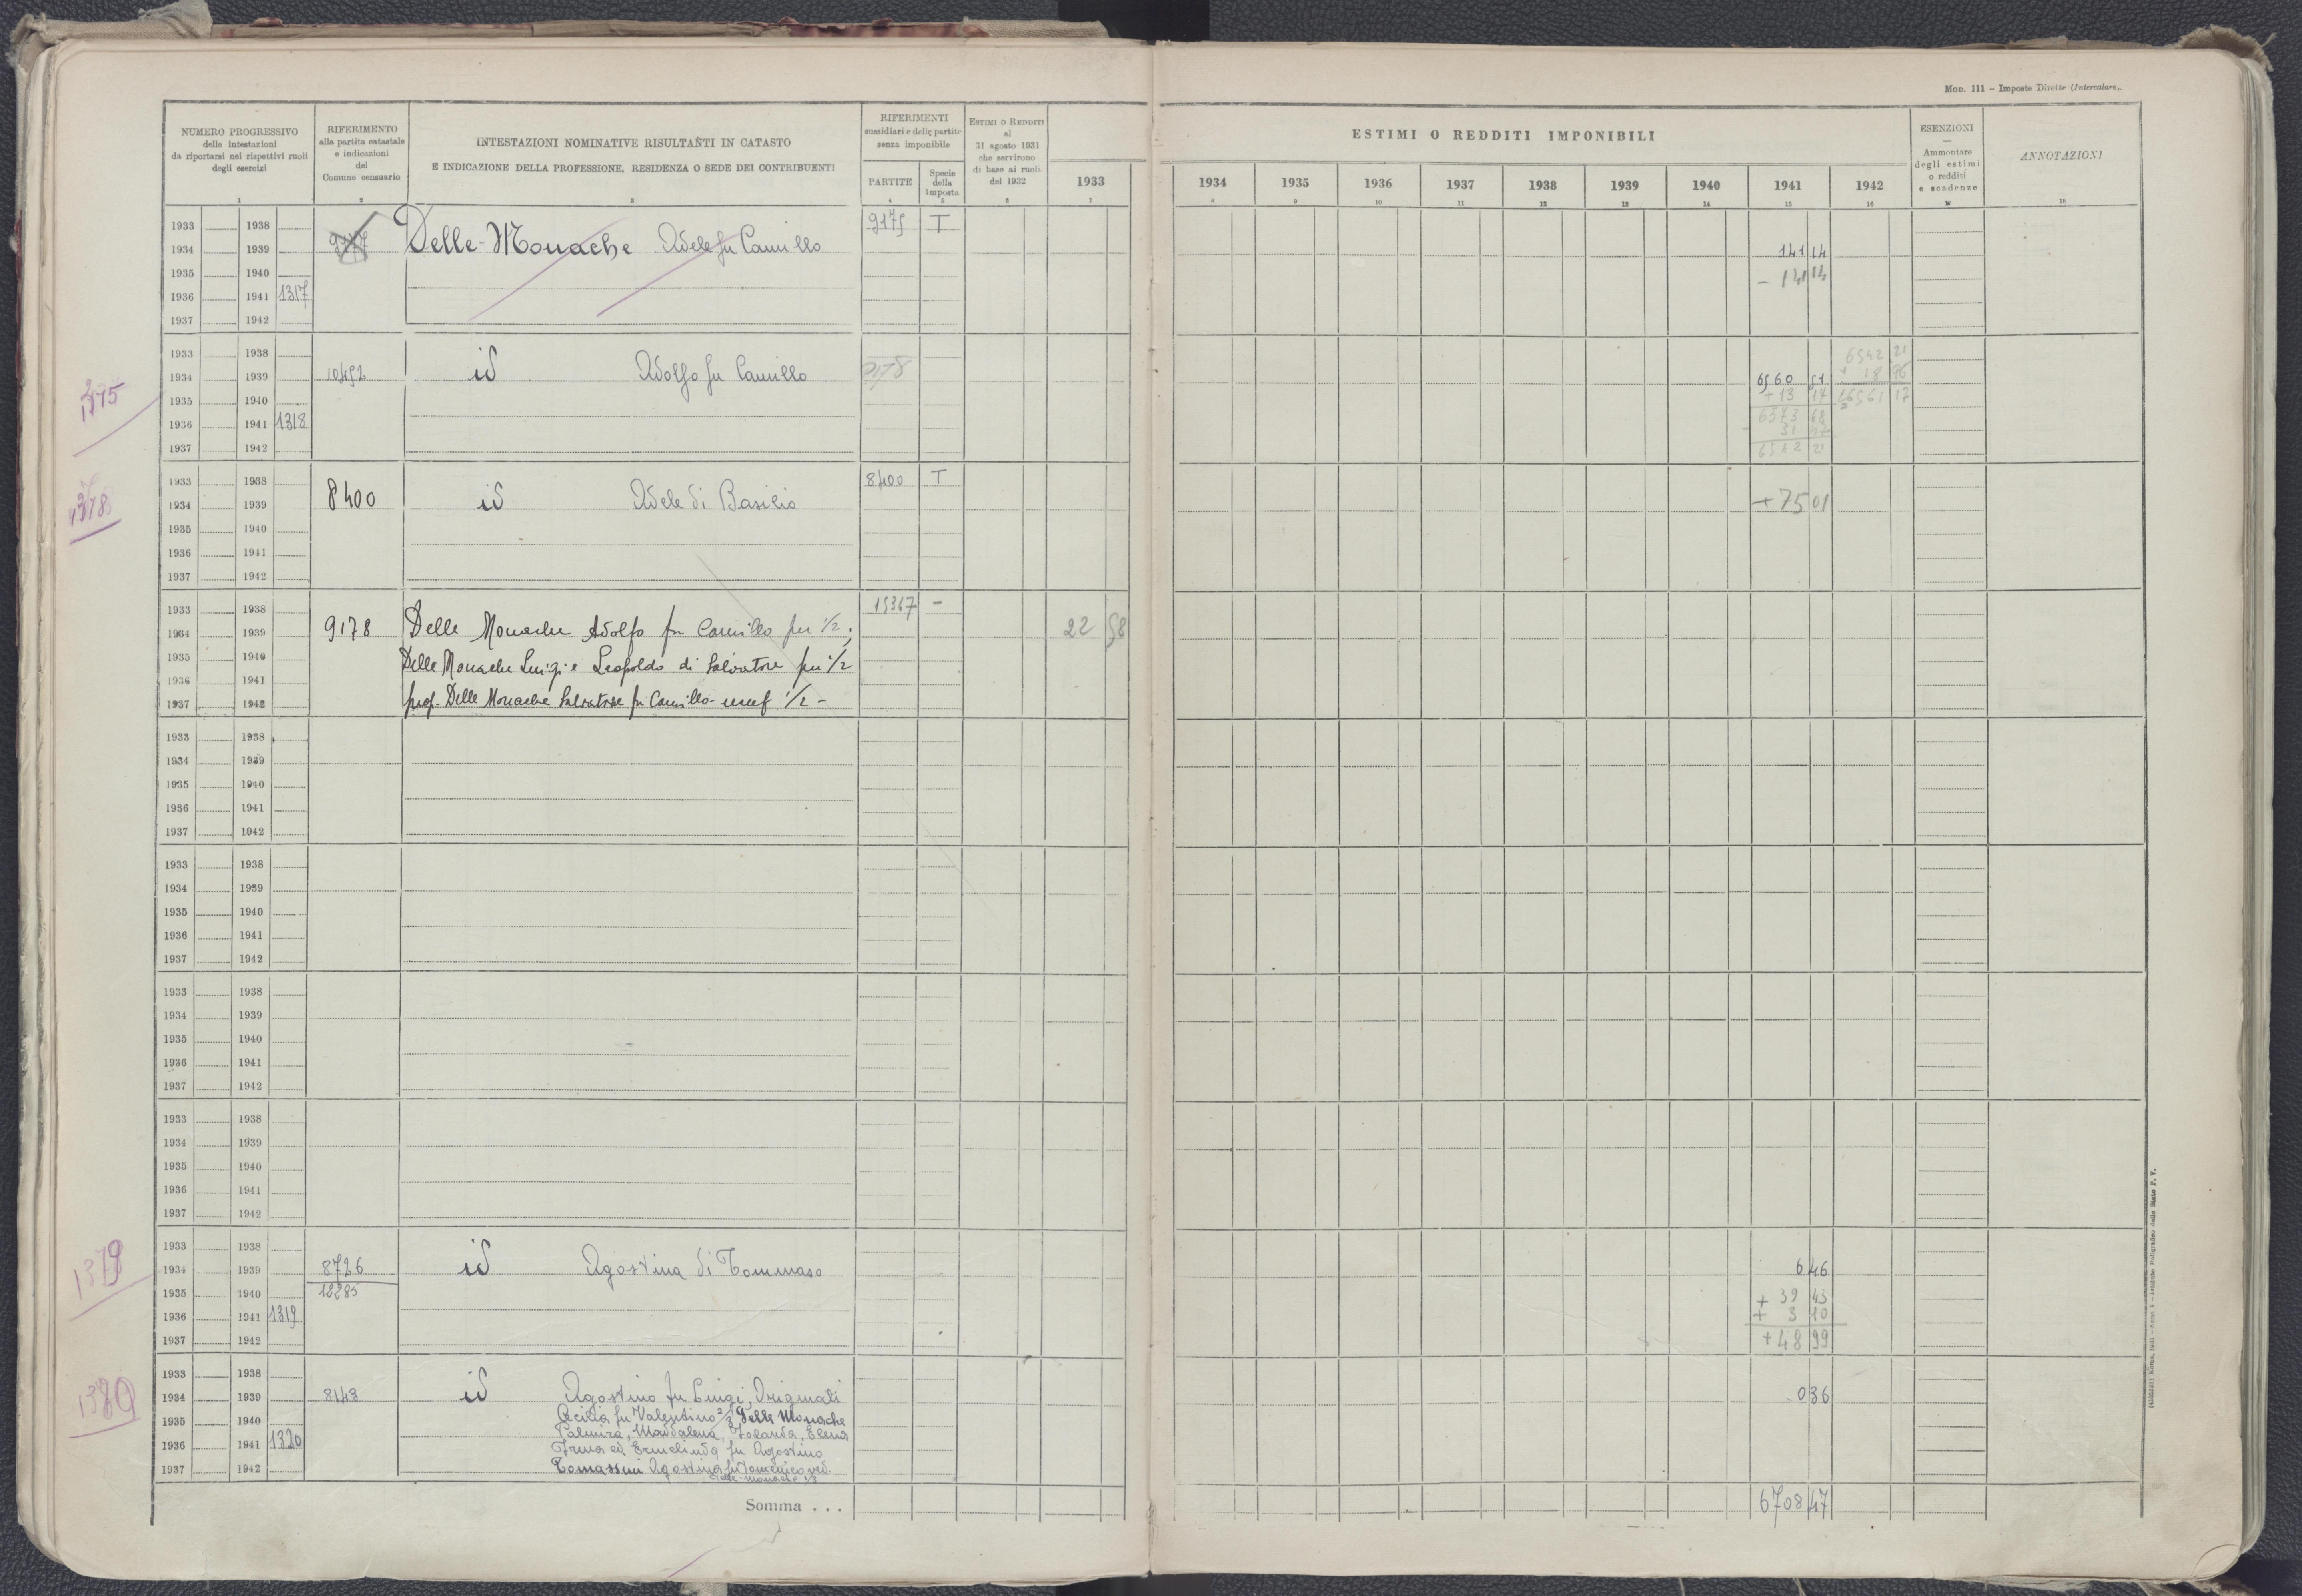 MOD. 111 - Imposte Dirette (Intercalare).
NUMERO PROGRESSIVO
delle intestazioni
da riportarsi nei rispettivi ruoli
degli esercizi
1
RIFERIMENTO
alla partita catastale
e indicazioni
del
Comune censuario
2
INTESTAZIONI NOMINATIVE RISULTANTI IN CATASTO
E INDICAZIONE DELLA PROFESSIONE, RESIDENZA O SEDE DEI CONTRIBUENTI
3
RIFERIMENTI
sussidiari e delle partite
senza imponibile
PARTITE
4
Specie
della
imposta
5
ESTIMI O REDDITI
al
31 agosto 1931
che servirono
di base ai ruoli
del 1932
6
ESTIMI O REDDITI IMPONIBILI
1933 1934 1935 1936 1937 1938 1939 1940 1941 1942
7 8 9 10 11 12 13 14 15 16
ESENZIONI
Ammontare
degli estimi
o redditi
e scadenze
17
ANNOTAZIONI
18
1933 1938 9175 T
1934 1939 Delle-Monache Adele fu Camillo 141 14
1935 1940 - 141 14
1936 1941 1317
1937 1942
1933 1938 6542 21
1934 1939 10452 id Adolfo fu Camillo 9178 6560 51 + 18 96
1935 1940 + 13 17 6561 17
1936 1941 1318 6573 68
1937 1942 6542 21
1933 1938 8400 T
1934 1939 8400 id Adele di Basilio + 75 01
1935 1940
1936 1941
1937 1942
1933 1938 15367 -
1934 1939 9178 Delle Monache Adolfo fu Camillo per 1/2; 22 58
1935 1940 Delle Monache Luigi e Leopoldo di Salvatore per 1/2
1936 1941
1937 1942 prop. Delle Monache Salvatore fu Camillo - usuf 1/2 -
1933 1938
1934 1939
1935 1940
1936 1941
1937 1942
1933 1938
1934 1939
1935 1940
1936 1941
1937 1942
1933 1938
1934 1939
1935 1940
1936 1941
1937 1942
1933 1938
1934 1939
1935 1940
1936 1941
1937 1942
1379
1933 1938
1934 1939 8726 id Agostina di Tommaso 6 46
1935 1940 12285 + 39 43
1936 1941 1319 + 3 10
1937 1942 + 48 99
1380
1933 1938
1934 1939 8143 id Agostino fu Luigi, 0 36
1935 1940 Cecilia fu Valentino 2/3 Delle Monache
Palmira, Maddalena, Jolanda, Elena
1936 1941 1320 Irma ed Ermelinda fu Agostino
1937 1942 Tomassini Agostina fu Domenico ved.
Delle-Monache 1/3
Somma . . . 6708 47